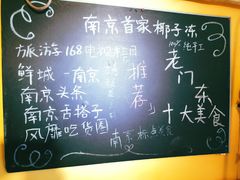 南京首家椰子冻
100%纯手工
旅游168电视栏目
鲜城-南京
南京头条
南京舌搭子
风靡吃货圈
「推荐」
老门东
十大美食
南京标志美食